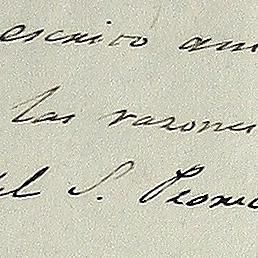 escrito an
las razones
el S. Pion